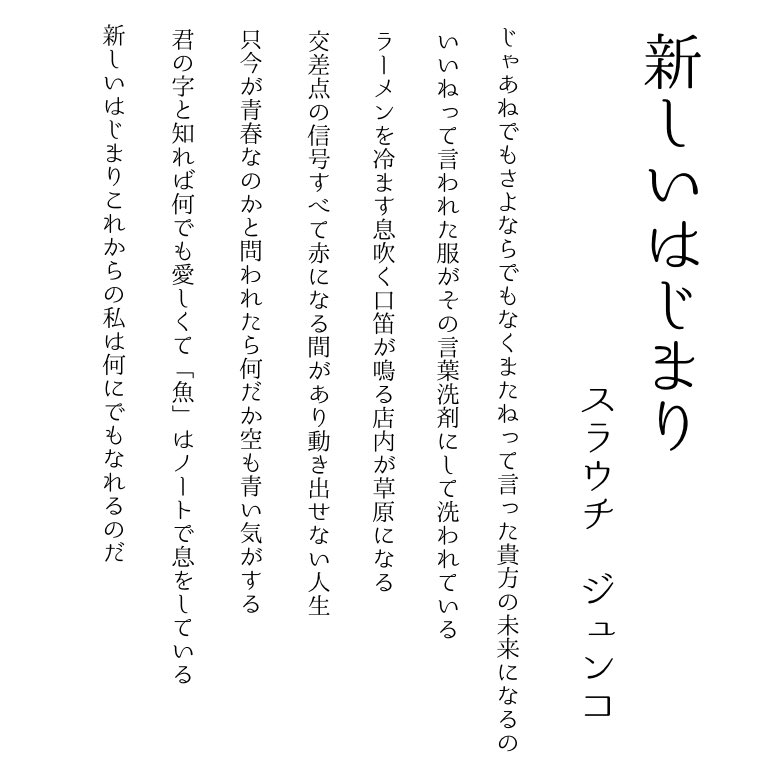 新しいはじまり
スラウチ　ジュンコ
じゃあねでもさよならでもなくまたねって言った貴方の未来になるの
いいねって言われた服がその言葉洗剤にして洗われている
ラーメンを冷ます息吹く口笛が鳴る店内が草原になる
交差点の信号すべて赤になる間があり動き出せない人生
只今が青春なのかと問われたら何だか空も青い気がする
君の字と知れば何でも愛しくて「魚」はノートで息をしている
新しいはじまりこれからの私は何にでもなれるのだ